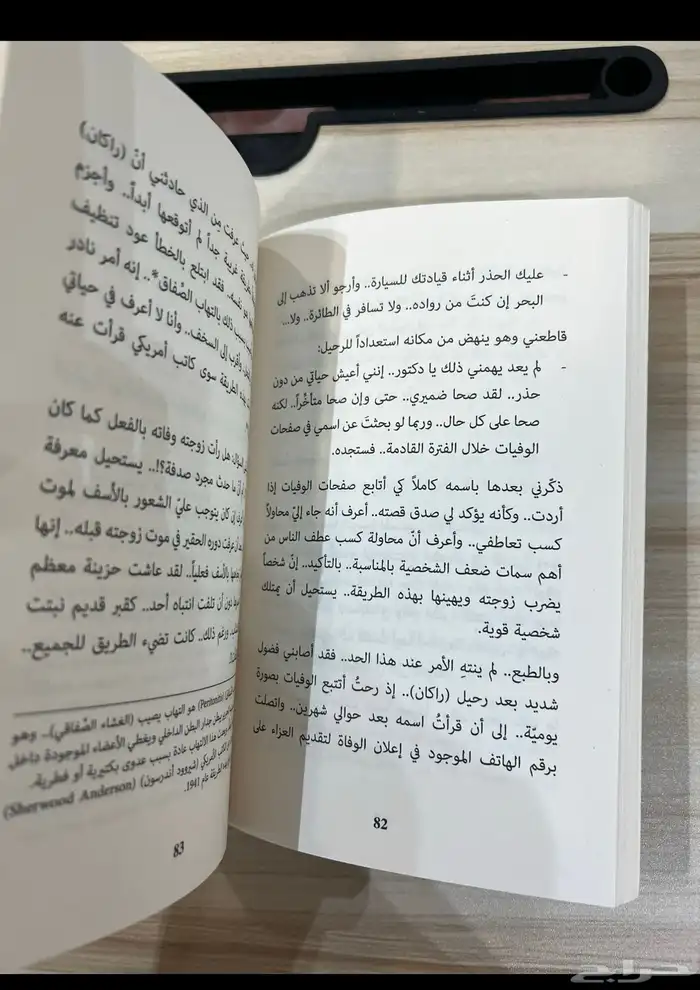 - عليك الحذر أثناء قيادتك للسيارة.. وأرجو ألا تذهب إلى
البحر إن كنتَ من رواده.. ولا تسافر في الطائرة.. ولا...
قاطعني وهو ينهض من مكانه استعداداً للرحيل:
- لم يعد يهمني ذلك يا دكتور.. إنني أعيش حياتي من دون
حذر.. لقد صحا ضميري.. حتى وإن صحا متأخّراً.. لكنه
صحا على كل حال.. وربما لو بحثتَ عن اسمي في صفحات
الوفيات خلال الفترة القادمة.. فستجده.
ذكّرني بعدها باسمه كاملاً كي أتابع صفحات الوفيات إذا
أردت.. وكأنه يؤكد لي صدق قصته.. أعرف أنه جاء إليّ محاولاً
كسب تعاطفي.. وأعرف أنّ محاولة كسب عطف الناس من
أهم سمات ضعف الشخصية بالمناسبة.. بالتأكيد.. إنّ شخصاً
يضرب زوجته ويهينها بهذه الطريقة.. يستحيل أن يمتلك
شخصية قوية.
وبالطبع.. لم ينتهِ الأمر عند هذا الحد.. فقد أصابني فضول
شديد بعد رحيل (راكان).. إذ رحتُ أتتبع الوفيات بصورة
يوميّة.. إلى أن قرأتُ اسمه بعد حوالي شهرين.. واتصلت
برقم الهاتف الموجود في إعلان الوفاة لتقديم العزاء على
82
عرفت مِن الذي حادثني أنّ (راكان)
غريبة جداً لم أتوقعها أبداً.. وأجزم
فقد ابتلع بالخطأ عود تنظيف
ذلك بالتهاب الصِّفاق*.. إنه أمر نادر
وأقرب إلى السخف.. وأنا لا أعرف في حياتي
الطريقة سوى كاتب أمريكي قرأت عنه
هل رأت زوجته وفاته بالفعل كما كان
ما حدث مجرد صدفة؟!.. يستحيل معرفة
إن كان يتوجب عليّ الشعور بالأسف لموت
عرفت دوره الحقير في موت زوجته قبله.. إنها
بالأسف فعلياً.. لقد عاشت حزينة معظم
دون أن تلفت انتباه أحد.. كقبر قديم نبتت
ورغم ذلك.. كانت تضيء الطريق للجميع..
(Peritonitis) هو التهاب يصيب (الغشاء الصِّفاقي).. وهو
يبطن جدار البطن الداخلي ويغطي الأعضاء الموجودة داخل
هذا الالتهاب عادة بسبب عدوى بكتيرية أو فطرية.
الأمريكي (شيروود أندرسون) (Sherwood Anderson)
الطريقة عام 1941.
83
حراج